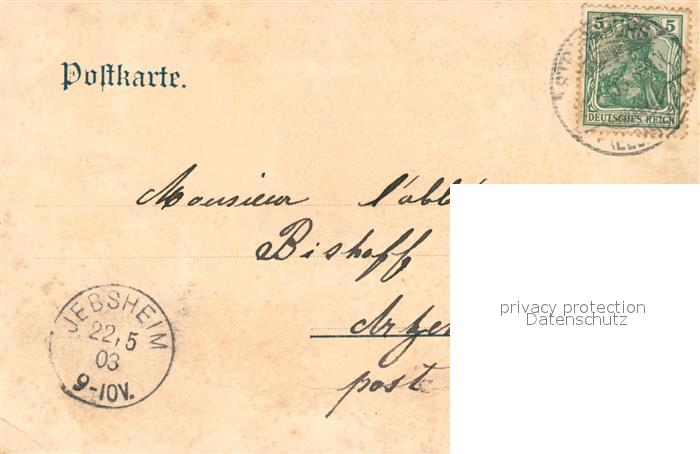 5 5
DEUTSCHES REICH
Postkarte.
Monsieur l'abbé
Bishoff
post
JEBSHEIM
22,5
03
9-10V.
privacy protection
Datenschutz